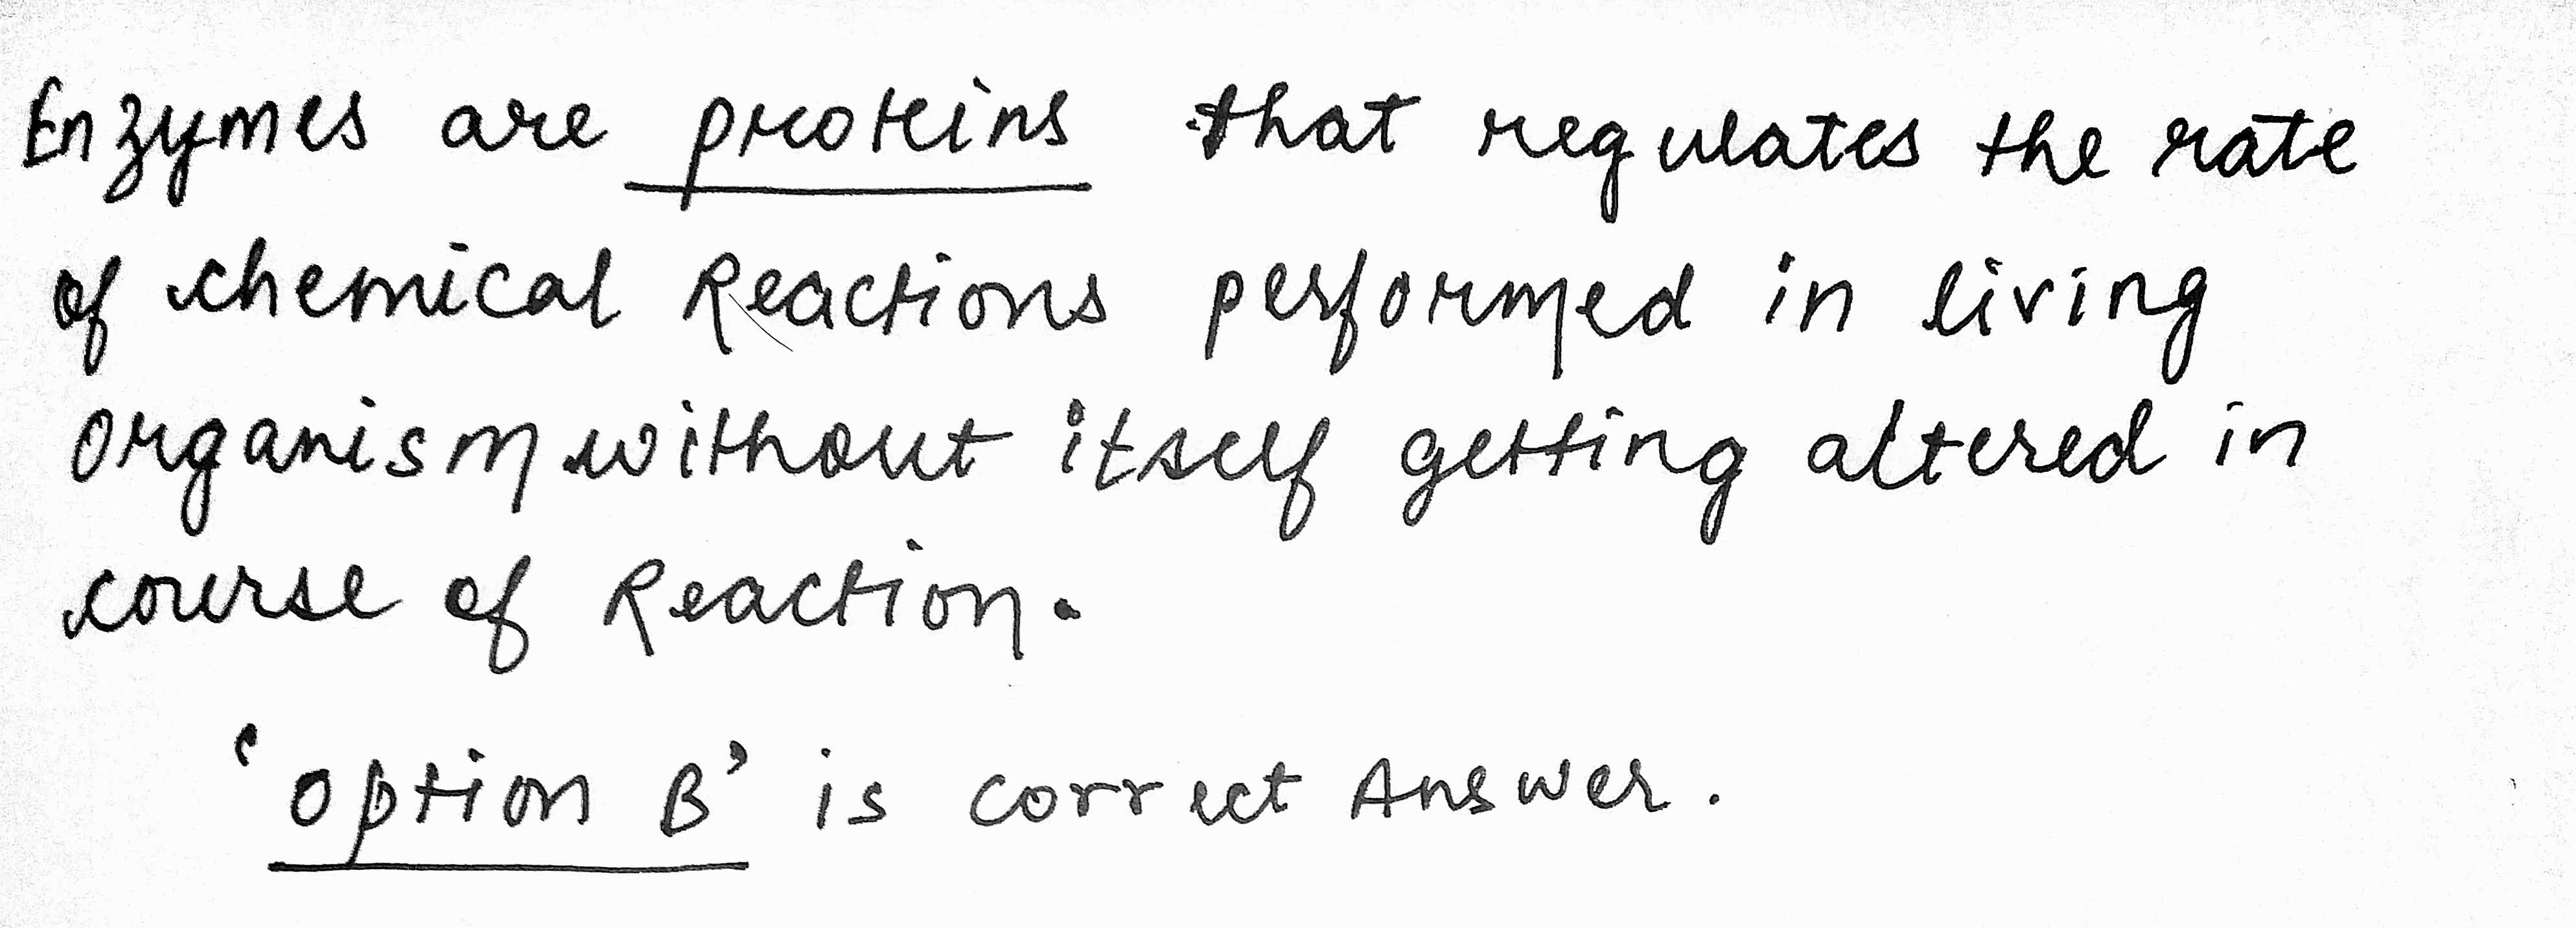 Enzymes are proteins that regulates the rate
of chemical Reactions performed in living
organism without itself getting altered in
course of Reaction.
'option B' is correct Answer.